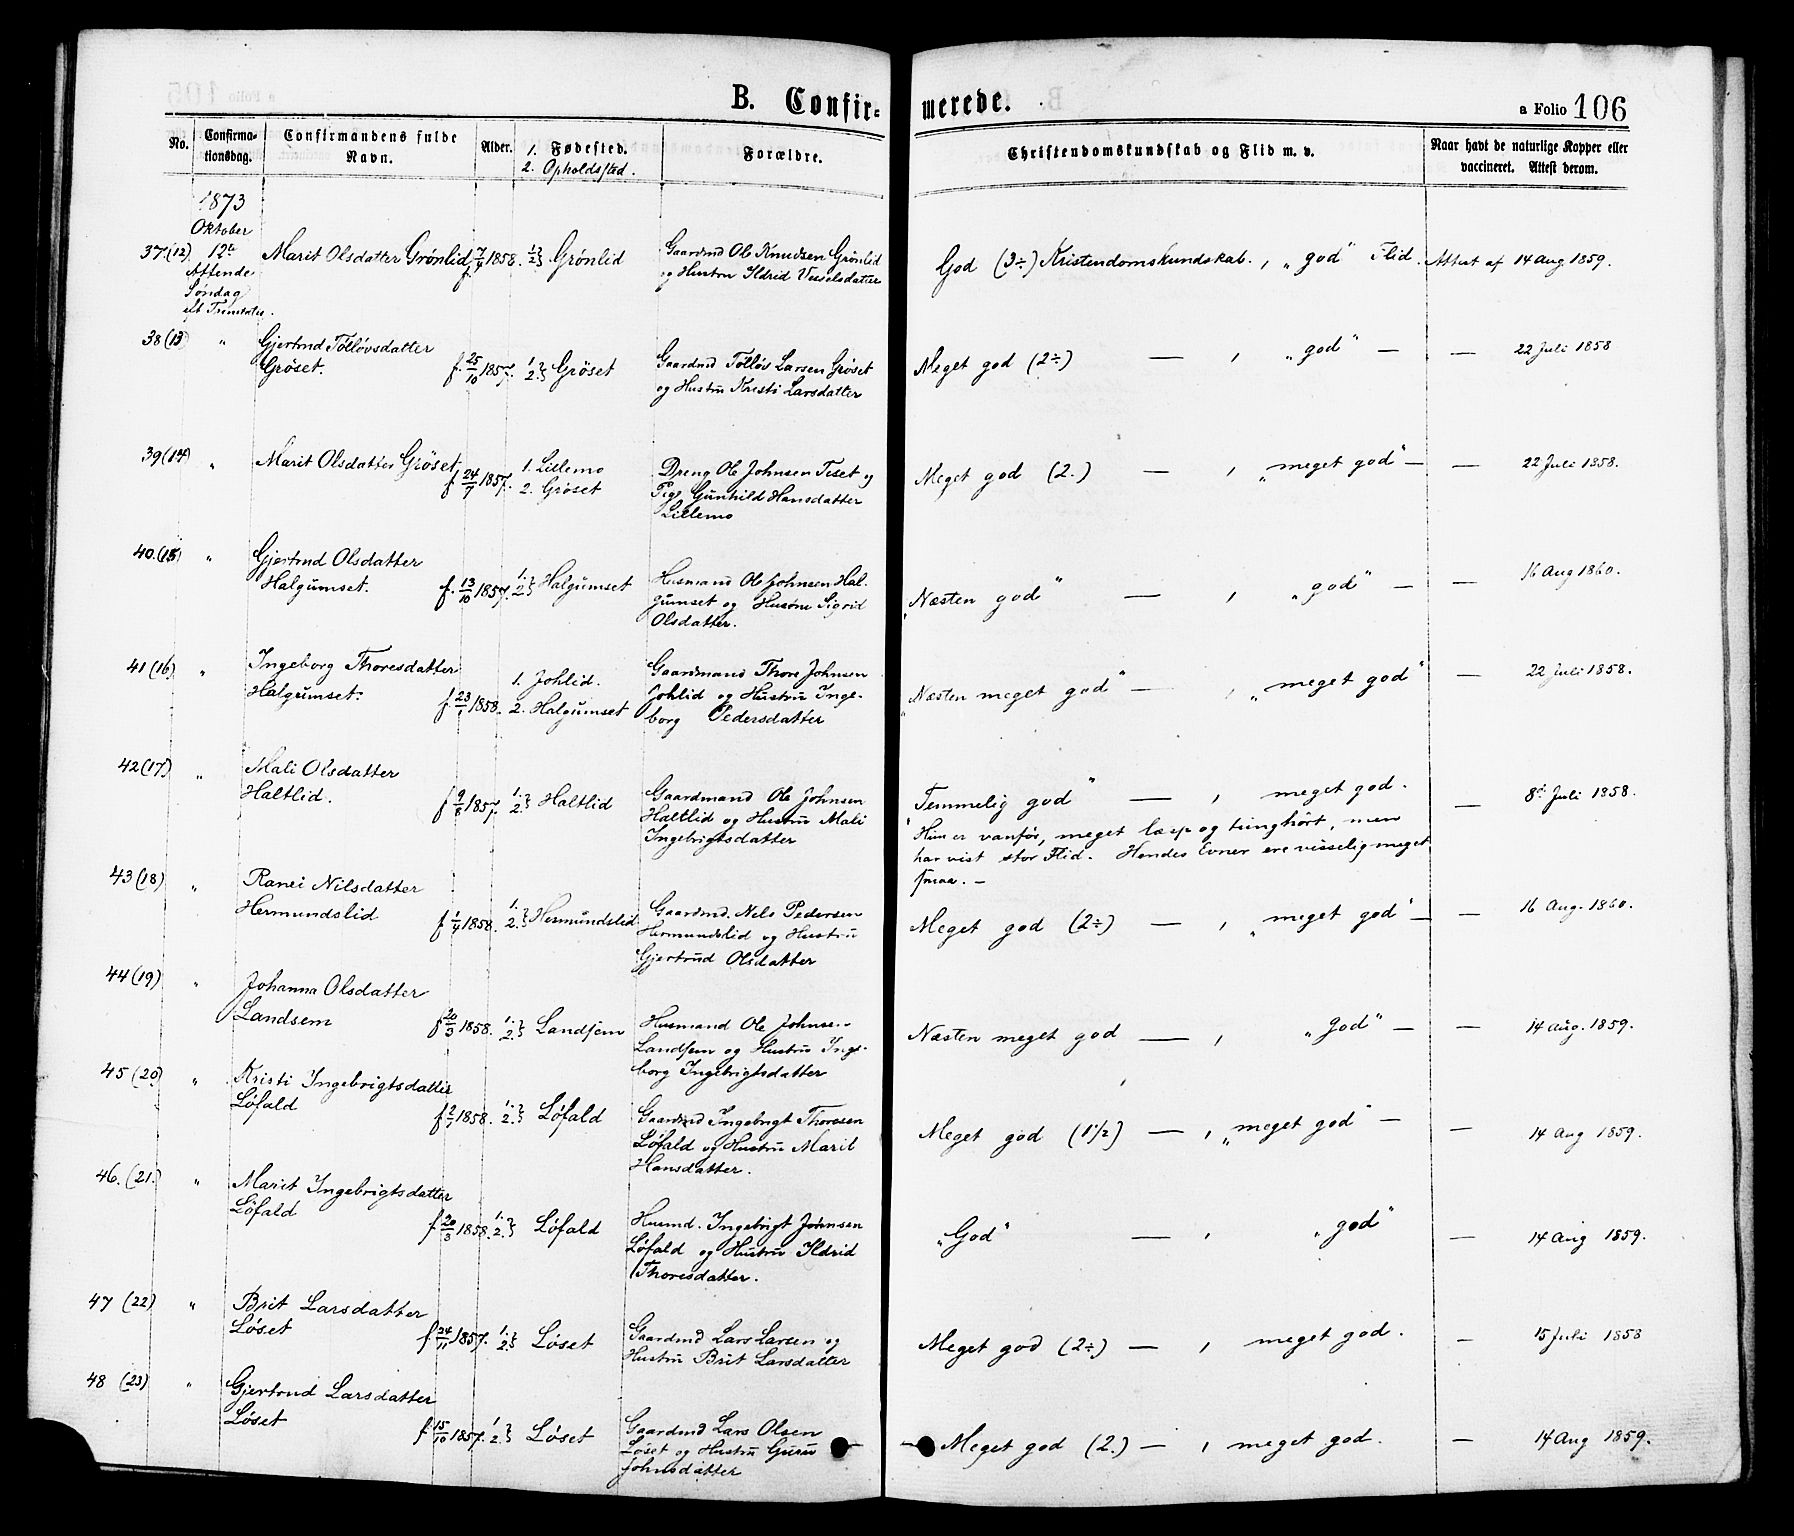 B. Confir=
merede.
a Folio 106
No.
Confirma-
tionsdag.
Confirmandens fulde
Navn.
Alder.
1. Fødested.
2. Opholdssted.
Forældre.
Christendomskundskab og Flid m. v.
Naar havt de naturlige Kopper eller
vaccineret. Attest derom.
1873
Oktober
12te
Attende
Søndag
eft. Trinitatis.
37.(12) Marit Olsdatter Grönlid f. 7/9 1858. 1/2} Grönlid
Gaardmd Ole Knudsen Grönlid
og Hustru Ildrid Vesselsdatter
God (3÷) Kristendomskundskab. , „god“ Flid. Attest af 14 Aug. 1859.
38(13) " Gjertrud Tölløvsdatter
Gröset. f. 25/10 1857. 1./2.} Gröset
Gaardmd Tölløv Larsen Gröset
og Hustru Kristi Larsdatter
Meget god (2÷) — , „god“ — — 22 Juli 1858
39(14) " Marit Olsdatter Gröset f. 24/7 1857.
1. Lillemo
2. Gröset
Dreng Ole Johnsen Teset og
Pige Gunhild Hansdatter
Lillemo
Meget god (2.) — , „meget god“ — — 22 Juli 1858.
40.(15) " Gjertrud Olsdatter
Halgumset. f. 13/10 1857. 1./2.} Halgumset
Husmand Ole Johnsen Hal-
gumset og Hustru Sigrid
Olsdatter.
„Næsten god“ — , „god“ — — 16 Aug 1860.
41(16) " Ingeborg Thoresdatter
Halgumset. f. 23/1 1858.
1. Johlid.
2. Halgumset
Gaardmand Thore Johnsen
Johlid og Hustru Inge-
borg Pedersdatter
„Næsten meget god“ — , „meget god“ — 22 Juli 1858.
42(17) " Mali Olsdatter
Haltlid. f. 9/8 1857. 1./2.} Haltlid
Gaardmand Ole Johnsen
Haltlid og Hustru Mali
Ingebrigtsdatter
„Temmelig god“ — , meget god. — 8de Juli 1858.
Hun er vanför, meget læsp og tunghört, men
har vist stor Flid. Hendes Evner ere visselig meget
smaa. —
43(18) " Ranei Nilsdatter
Hermundslid f. 1/4 1858. 1./2.} Hermundslid
Gaardmd. Nels Pedersen
Hermundslid og Hustru
Gjertrud Olsdatter
Meget god (2÷) — , „meget god“ — — 16 Aug. 1860.
44(19) " Johanna Olsdatter
Landsem f. 20/3 1858. 1./2.} Landsem
Husmand Ole Johnsen
Landsem og Hustru Inge-
borg Ingebrigtsdatter
Næsten meget god — , „god“ — — 14 Aug. 1859.
45(20) " Kristi Ingebrigtsdatter
Löfald f. 2/7 1858. 1./2.} Löfald
Gaardmd Ingebrigt Thoresen
Löfald og Hustru Marit
Hansdatter.
Meget god (1½) — , „meget god“ — — 14 Aug 1859.
46.(21.) " Marit Ingebrigtsdatter
Löfald f. 20/3 1858. 1./2.} Löfald
Husmd. Ingebrigt Johnsen
Löfald og Hustru Ildrid
Thoresdatter.
„God“ — , „god“ — 14 Aug 1859.
47 (22) " Brit Larsdatter
Löset f. 24/11 1857. 1./2.} Löset
Gaardmd Lars Larsen og
Hustru Brit Larsdatter
Meget god (2÷) — , meget god. — 15 Juli 1858
48 (23) " Gjertrud Larsdatter
Löset f. 15/10 1857. 1/2.} Löset
Gaardmd Lars Olsen
Löset og Hustru Guru
Johnsdatter
Meget god (2.) — , meget god. — 14 Aug 1859.